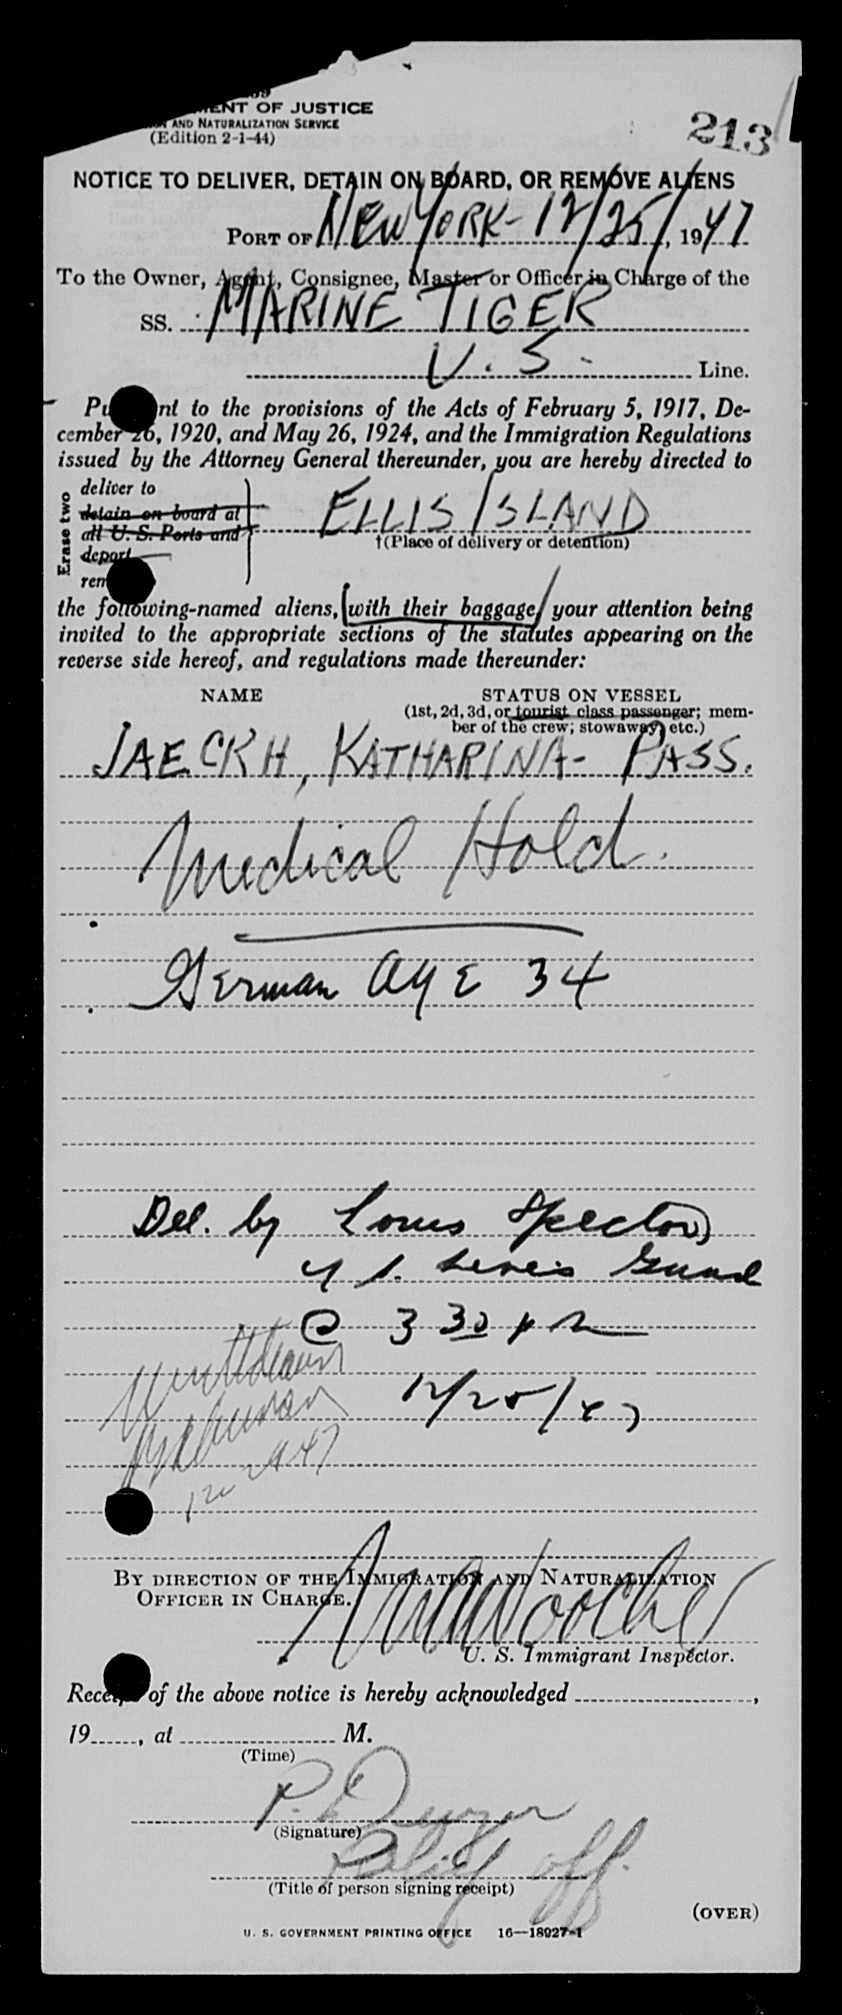 ENT OF JUSTICE
AND NATURALIZATION SERVICE
(Edition 2-1-44)
213
NOTICE TO DELIVER, DETAIN ON BOARD, OR REMOVE ALIENS
PORT OF NEW YORK - 12/25/, 1947
To the Owner, Agent, Consignee, Master or Officer in Charge of the
SS. MARINE TIGER
U. S. - Line.
nt to the provisions of the Acts of February 5, 1917, De-
cember 26, 1920, and May 26, 1924, and the Immigration Regulations
issued by the Attorney General thereunder, you are hereby directed to
Erase two
deliver to
detain on board at
all U. S. Ports and
deport
rem
ELLIS ISLAND
†(Place of delivery or detention)
the following-named aliens, (with their baggage) your attention being
invited to the appropriate sections of the statutes appearing on the
reverse side hereof, and regulations made thereunder:
NAME STATUS ON VESSEL
(1st, 2d, 3d, or tourist class passenger; mem-
ber of the crew; stowaway, etc.)
JAECKH, KATHARINA - PASS.
Medical Hold.
German AGE 34
Del. by Louis Spector
Guard
@ 3 30 pm
12/25/47
BY DIRECTION OF THE IMMIGRATION AND NATURALIZATION
OFFICER IN CHARGE.
U. S. Immigrant Inspector.
Receipt of the above notice is hereby acknowledged ,
19 , at M.
(Time)
P.
(Signature)
off.
(Title of person signing receipt)
(OVER)
U. S. GOVERNMENT PRINTING OFFICE 16—18927-1